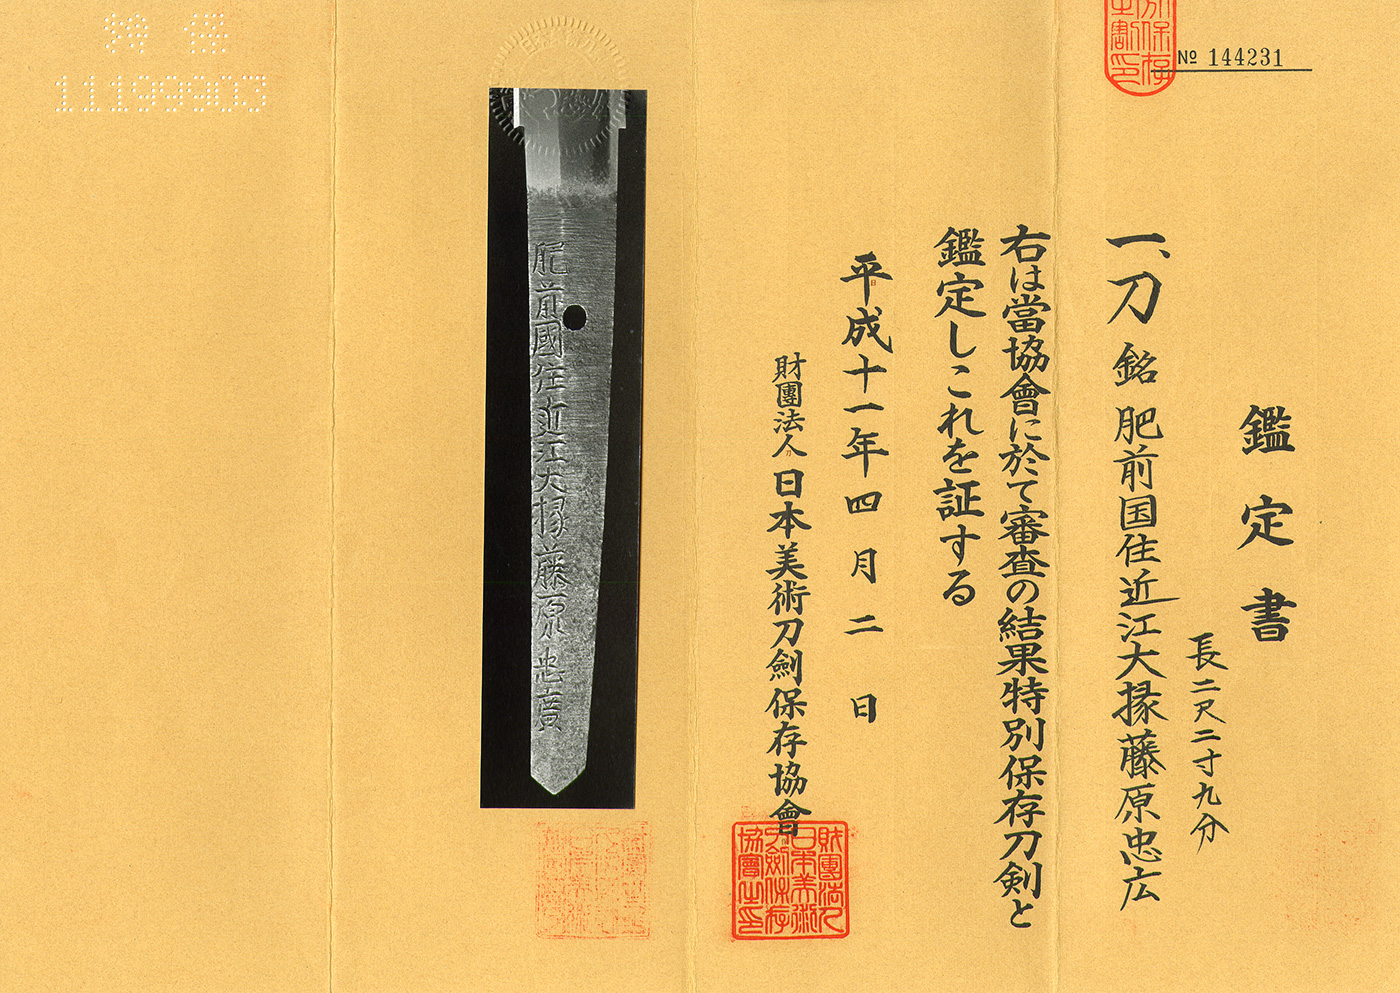 № 144231
鑑定書
長二尺二寸九分
一、刀 銘 肥前国住近江大掾藤原忠広
右は當協會に於て審査の結果特別保存刀剣と
鑑定しこれを証する
平成十一年四月二日
財團法人日本美術刀劍保存協會
財團法人
日本美術
刀劍保存
協會之印
肥前國住近江大掾藤原忠廣
特保
11199903